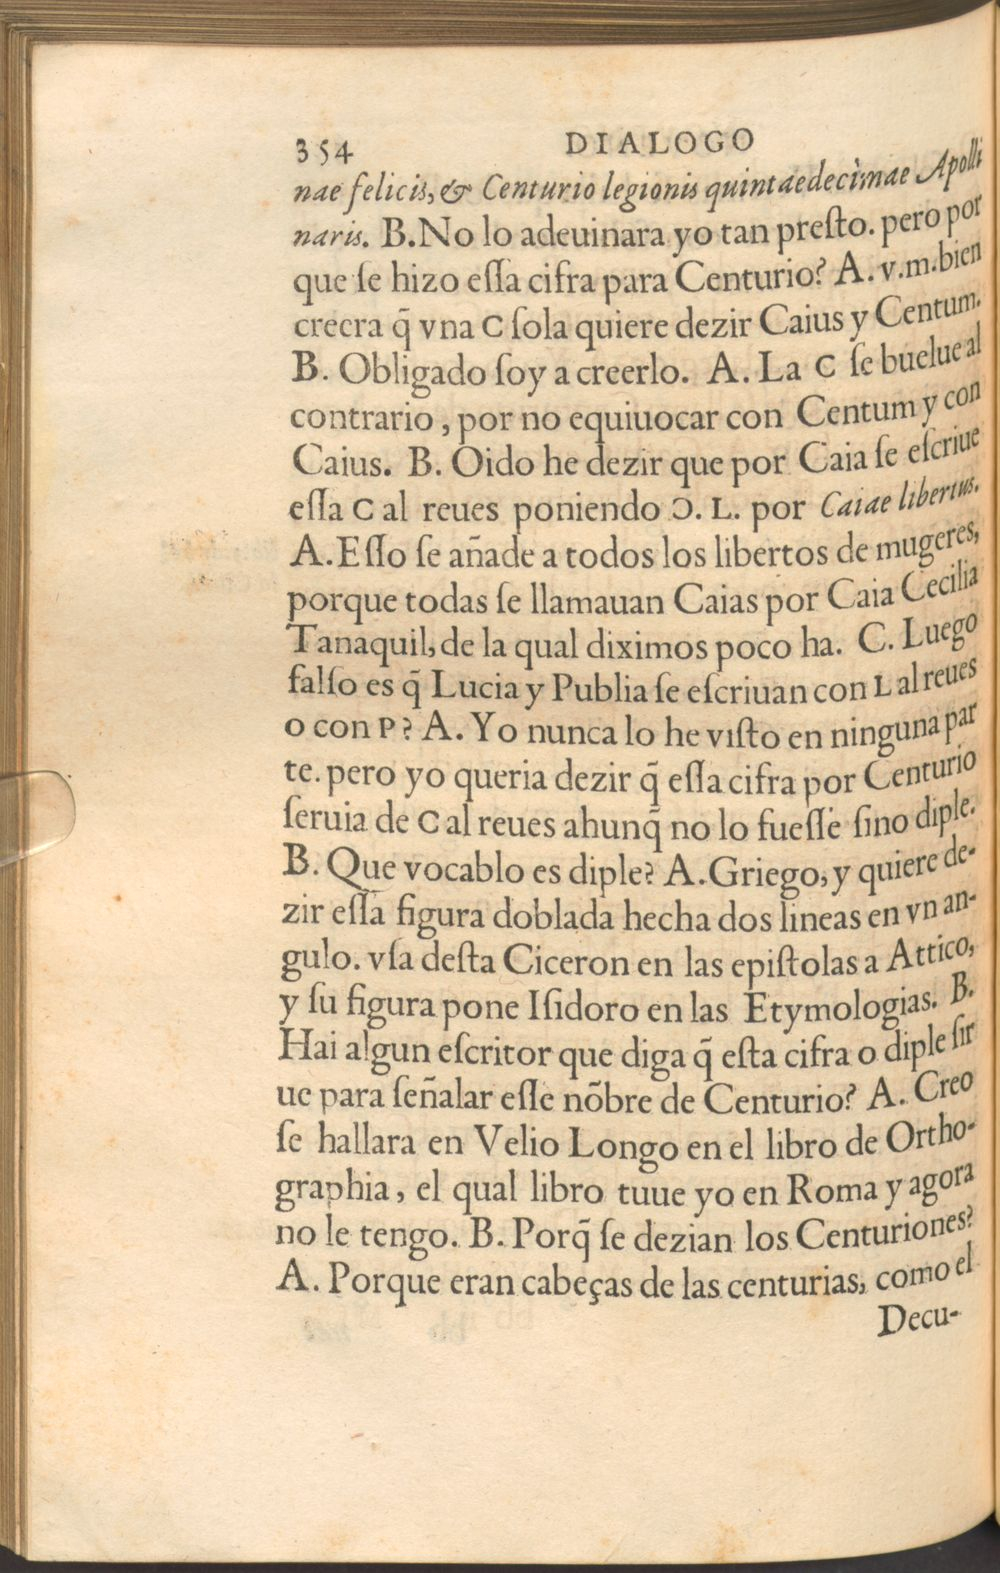 354 DIALOGO
nae felicis, & Centurio legionis quintaedecimae Apolli
naris. B. No lo adeuinara yo tan preſto. pero por
que ſe hizo eſſa cifra para Centurio? A. v.m. bien
creera q̃ vna C ſola quiere dezir Caius y Centum.
B. Obligado ſoy a creerlo. A. La C ſe buelue al
contrario, por no equiuocar con Centum y con
Caius. B. Oido he dezir que por Caia ſe eſcriue
eſſa C al reues poniendo Ɔ. L. por Caiae libertus.
A. Eſſo ſe añade a todos los libertos de mugeres,
porque todas ſe llamauan Caias por Caia Cecilia
Tanaquil, de la qual diximos poco ha. C. Luego
falſo es q̃ Lucia y Publia ſe eſcriuan con L al reues
o con P? A. Yo nunca lo he viſto en ninguna par
te. pero yo queria dezir q̃ eſſa cifra por Centurio
ſeruia de C al reues ahunq̃ no lo fueſſe ſino diple.
B. Que vocablo es diple? A. Griego, y quiere de-
zir eſſa figura doblada hecha dos lineas en vn an-
gulo. vſa deſta Ciceron en las epiſtolas a Attico,
y ſu figura pone Iſidoro en las Etymologias. B.
Hai algun eſcritor que diga q̃ eſta cifra o diple ſir
ue para ſeñalar eſſe nõbre de Centurio? A. Creo
ſe hallara en Velio Longo en el libro de Ortho-
graphia, el qual libro tuue yo en Roma y agora
no le tengo. B. Porq̃ ſe dezian los Centuriones?
A. Porque eran cabeças de las centurias, como el
Decu-